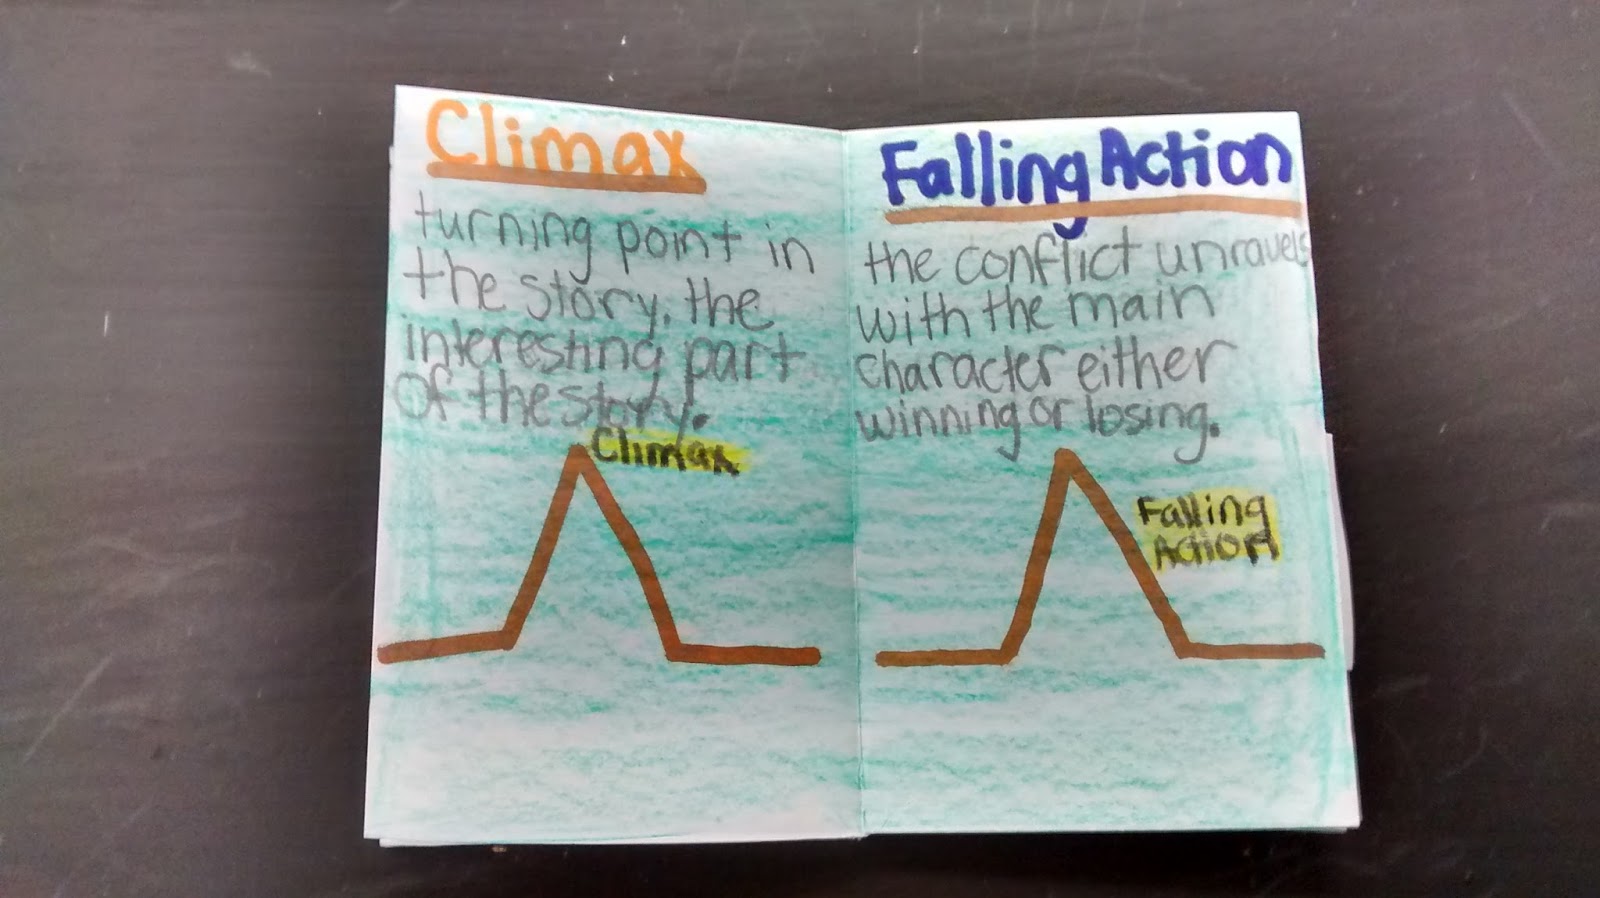 Climax
turning point in
the story, the
interesting part
of the story.
Climax
Falling Action
the conflict unravels
with the main
character either
winning or losing.
Falling
Action